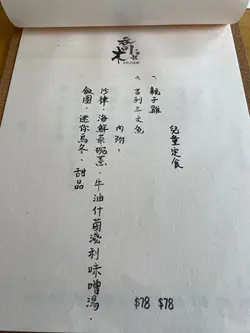 兒童定食
、親子雞 $78
、吉列三文魚 $78
內附：
沙律，海鮮茶碗蒸，牛油什菌淺利味噌湯，
飯團，迷你烏冬，甜品